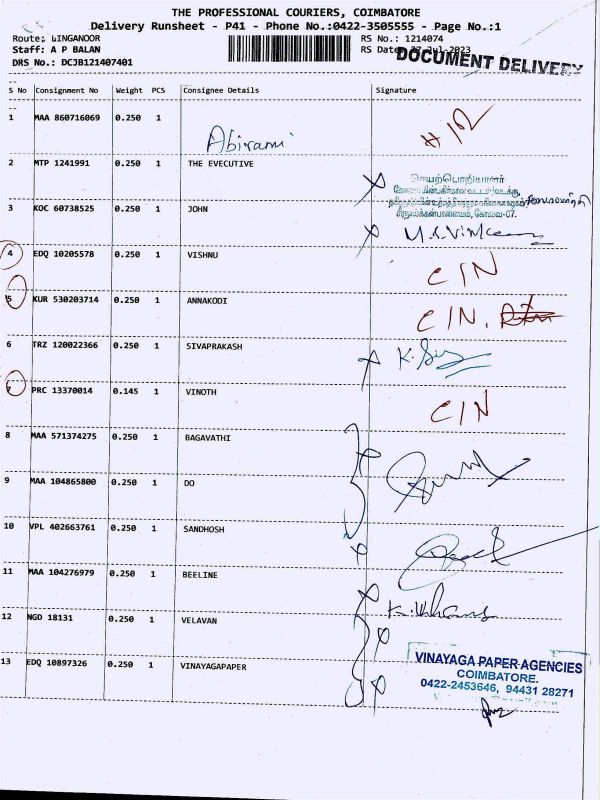 THE PROFESSIONAL COURIERS, COIMBATORE
Delivery Runsheet - P41 - Phone No.:0422-3505555 - Page No.:1
Route: LINGANOOR RS No.: 1214074
Staff: A P BALAN RS Date: 27-Jul-2023
DRS No.: DCJB121407401 DOCUMENT DELIVERY
S No Consignment No Weight PCS Consignee Details Signature
1 MAA 860716069 0.250 1
Abirami
2 MTP 1241991 0.250 1 THE EVECUTIVE
3 KOC 60738525 0.250 1 JOHN
4 EDQ 10205578 0.250 1 VISHNU
CIN
5 KUR 530203714 0.250 1 ANNAKODI
CIN.
6 TRZ 120022366 0.250 1 SIVAPRAKASH
7 PRC 13370014 0.145 1 VINOTH
CIN
8 MAA 571374275 0.250 1 BAGAVATHI
9 MAA 104865800 0.250 1 DO
10 VPL 402663761 0.250 1 SANDHOSH
11 MAA 104276979 0.250 1 BEELINE
12 NGD 18131 0.250 1 VELAVAN
13 EDQ 10897326 0.250 1 VINAYAGAPAPER
VINAYAGA PAPER AGENCIES
COIMBATORE.
0422-2453646, 94431 28271